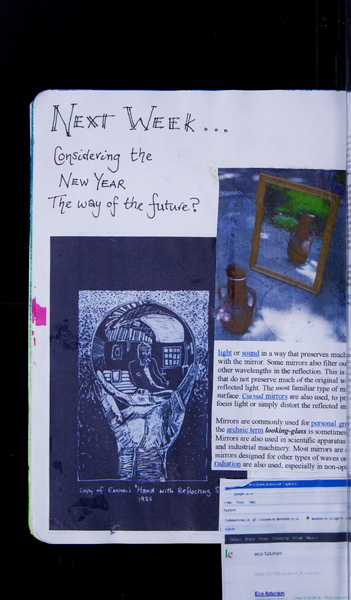 NEXT WEEK...
Considering the
NEW YEAR
The way of the future?
Copy of Escher's "Hand with Reflecting S
1935
light or sound in a way that preserves much
with the mirror. Some mirrors also filter ou
other wavelengths in the reflection. This is
that do not preserve much of the original w
reflected light. The most familiar type of mi
surface. Curved mirrors are also used, to pr
focus light or simply distort the reflected im
Mirrors are commonly used for personal gro
the archaic term looking-glass is sometimes
Mirrors are also used in scientific apparatus
and industrial machinery. Most mirrors are
mirrors designed for other types of waves or
radiation are also used, especially in non-op
eco futurism
Eco futurism